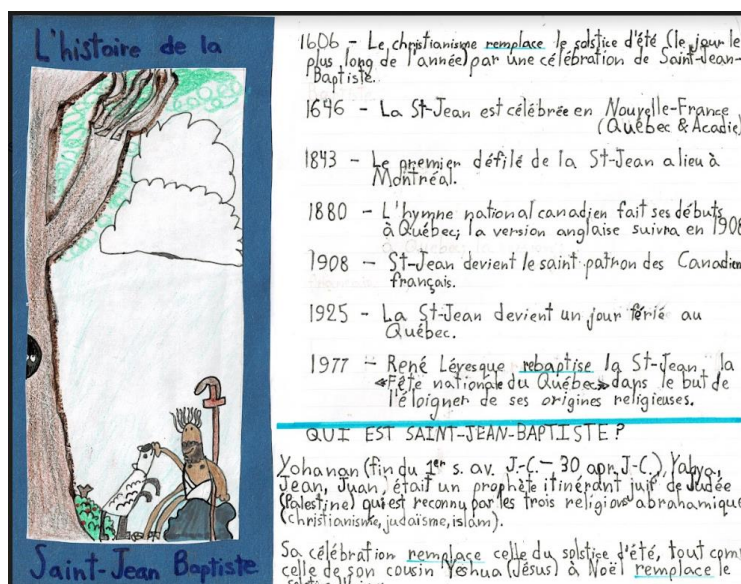 L'histoire de la
Saint-Jean Baptiste
1606 - Le christianisme remplace le solstice d'été (le jour le
plus long de l'année) par une célébration de Saint-Jean-
Baptiste.
1646 - La St-Jean est célébrée en Nouvelle-France
(Québec & Acadie)
1843 - Le premier défilé de la St-Jean a lieu à
Montréal.
1880 - L'hymne national canadien fait ses débuts
à Québec; la version anglaise suivra en 1908
1908 - St-Jean devient le saint patron des Canadien
français.
1925 - La St-Jean devient un jour férié au
Québec.
1977 - René Lévesque rebaptise la St-Jean la
«Fête nationale du Québec» dans le but de
l'éloigner de ses origines religieuses.
QUI EST SAINT-JEAN-BAPTISTE?
Yohanan (fin du 1er s. av. J.-C. - 30 apr. J-C.), Yahya,
Jean, Juan, était un prophète itinérant juif de Judée
(Palestine) qui est reconnu par les trois religions abrahamique
(christianisme, judaïsme, islam).
Sa célébration remplace celle du solstice d'été, tout com
celle de son cousin Yeshua (Jésus) à Noël remplace le